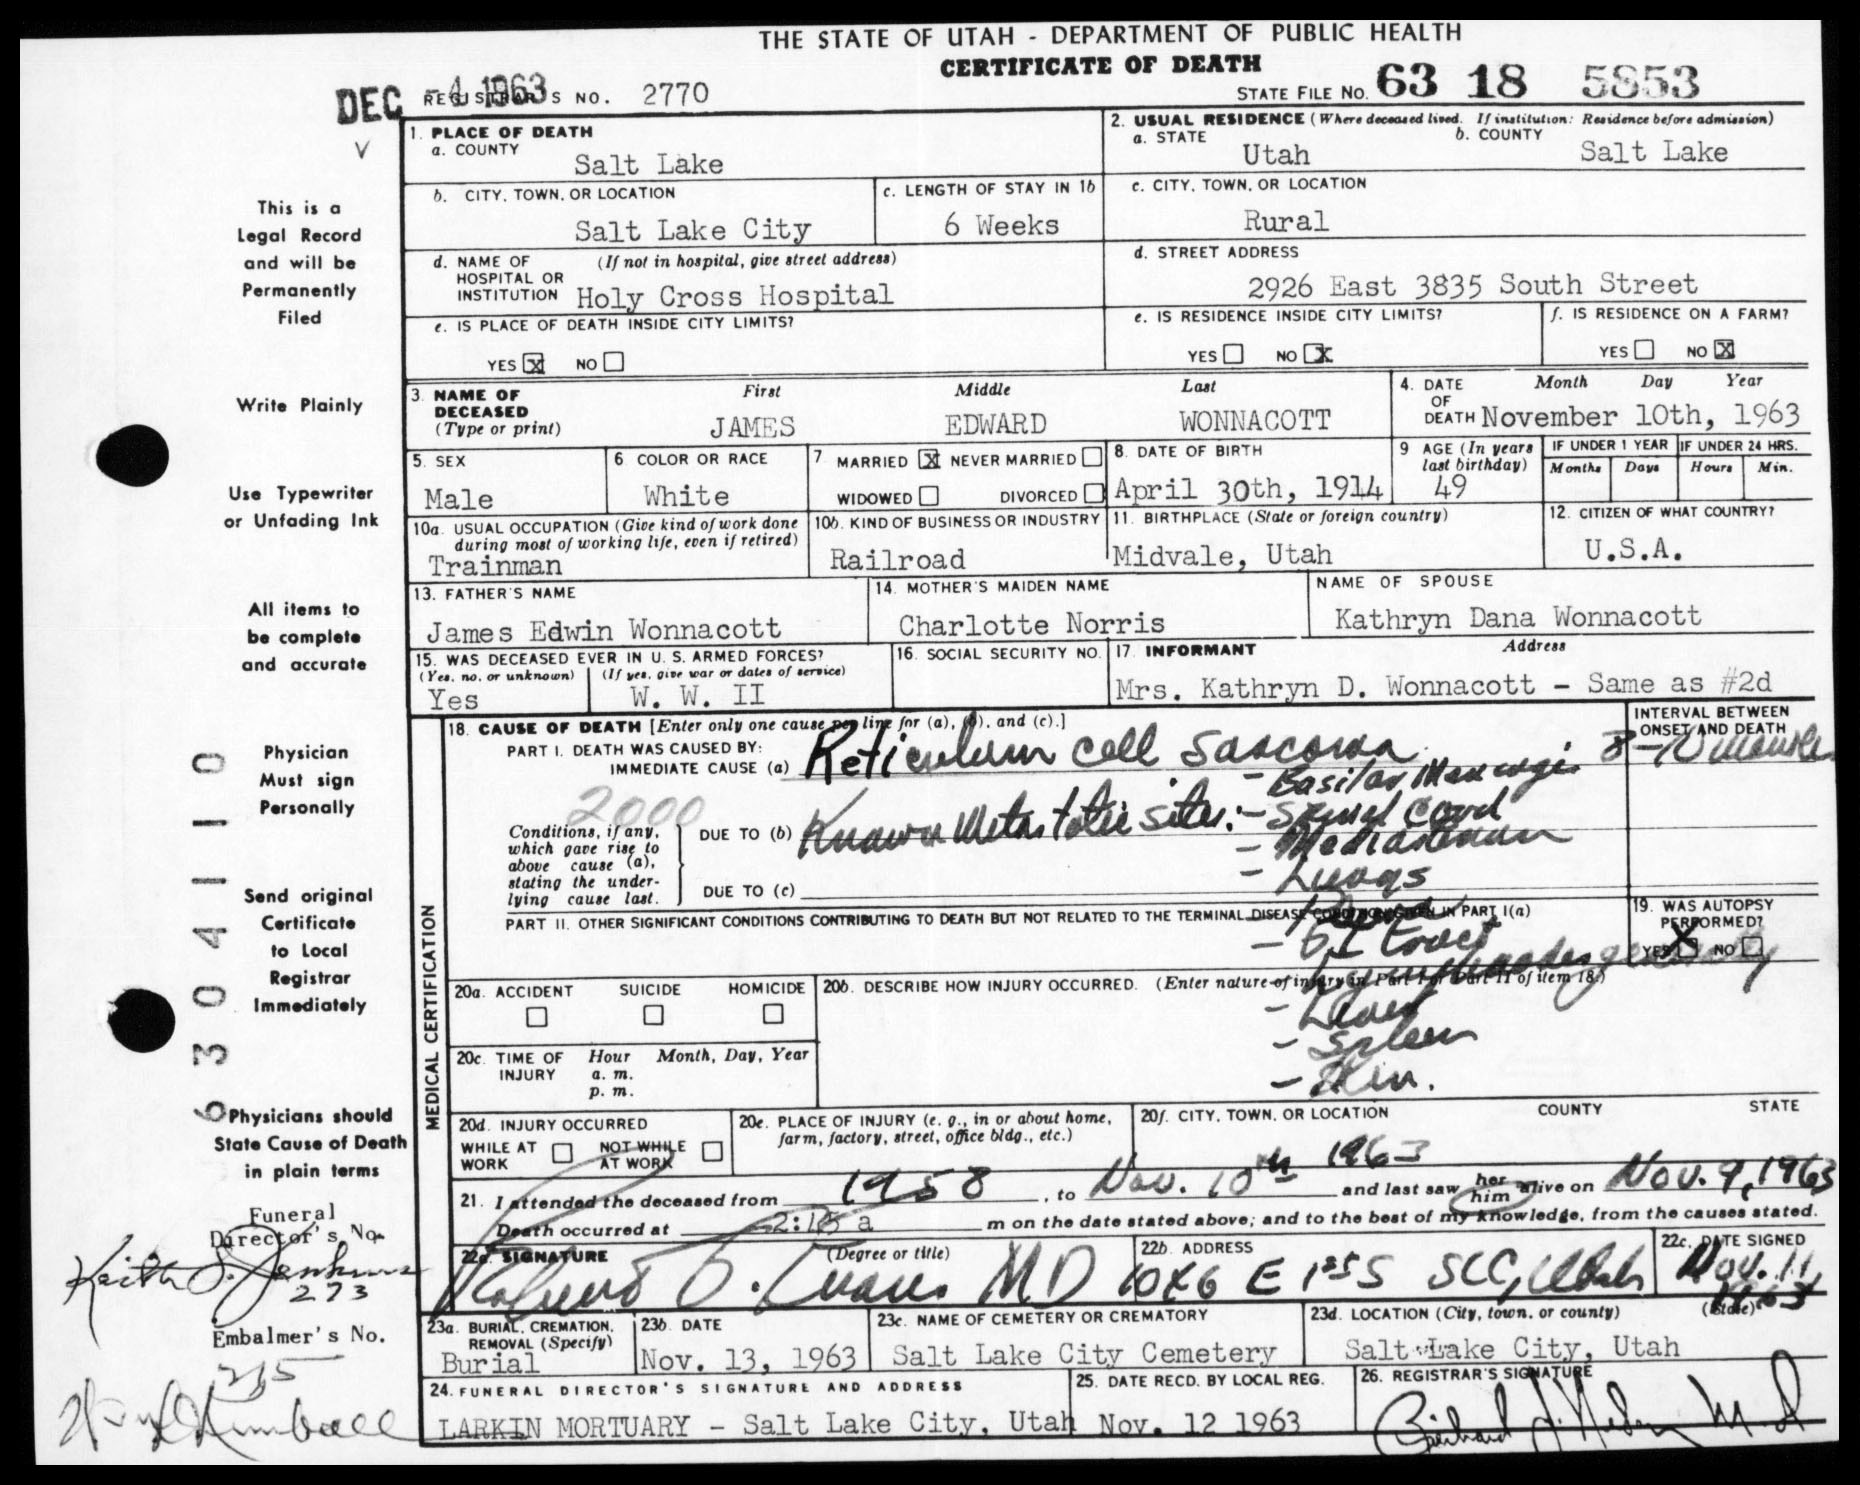 THE STATE OF UTAH - DEPARTMENT OF PUBLIC HEALTH
CERTIFICATE OF DEATH
DEC -4 1963
REGISTRAR'S NO. 2770
STATE FILE NO. 63 18 5853
1. PLACE OF DEATH
a. COUNTY
Salt Lake
2. USUAL RESIDENCE (Where deceased lived. If institution: Residence before admission)
a. STATE
Utah
b. COUNTY
Salt Lake
b. CITY, TOWN, OR LOCATION
Salt Lake City
c. LENGTH OF STAY IN 1b
6 Weeks
c. CITY, TOWN, OR LOCATION
Rural
d. NAME OF HOSPITAL OR INSTITUTION
(If not in hospital, give street address)
Holy Cross Hospital
d. STREET ADDRESS
2926 East 3835 South Street
e. IS PLACE OF DEATH INSIDE CITY LIMITS?
YES X NO
e. IS RESIDENCE INSIDE CITY LIMITS?
YES NO X
f. IS RESIDENCE ON A FARM?
YES NO X
3. NAME OF DECEASED (Type or print)
First Middle Last
JAMES EDWARD WONNACOTT
4. DATE OF DEATH
Month Day Year
November 10th, 1963
5. SEX
Male
6. COLOR OR RACE
White
7. MARRIED X NEVER MARRIED
WIDOWED DIVORCED
8. DATE OF BIRTH
April 30th, 1914
9 AGE (In years last birthday)
49
IF UNDER 1 YEAR
Months Days
IF UNDER 24 HRS.
Hours Min.
10a. USUAL OCCUPATION (Give kind of work done during most of working life, even if retired)
Trainman
10b. KIND OF BUSINESS OR INDUSTRY
Railroad
11. BIRTHPLACE (State or foreign country)
Midvale, Utah
12. CITIZEN OF WHAT COUNTRY?
U.S.A.
13. FATHER'S NAME
James Edwin Wonnacott
14. MOTHER'S MAIDEN NAME
Charlotte Norris
NAME OF SPOUSE
Kathryn Dana Wonnacott
15. WAS DECEASED EVER IN U. S. ARMED FORCES?
(Yes, no, or unknown) (If yes, give war or dates of service)
Yes W. W. II
16. SOCIAL SECURITY NO.
17. INFORMANT Address
Mrs. Kathryn D. Wonnacott - Same as #2d
MEDICAL CERTIFICATION
18. CAUSE OF DEATH [Enter only one cause per line for (a), (b), and (c).]
PART I. DEATH WAS CAUSED BY:
IMMEDIATE CAUSE (a) Reticulum cell sarcoma
INTERVAL BETWEEN ONSET AND DEATH
8-10 months
2000
Conditions, if any, which gave rise to above cause (a), stating the underlying cause last.
DUE TO (b) Known Metastatic sites:
- Basilar Meninges
- Spinal Cord
- Mediastinum
- Lungs
DUE TO (c)
PART II. OTHER SIGNIFICANT CONDITIONS CONTRIBUTING TO DEATH BUT NOT RELATED TO THE TERMINAL DISEASE CONDITION GIVEN IN PART I(a)
- G.I. tract
- Lymph nodes generally
- Liver
- Spleen
- Skin.
19. WAS AUTOPSY PERFORMED?
YES X NO
20a. ACCIDENT SUICIDE HOMICIDE
20b. DESCRIBE HOW INJURY OCCURRED. (Enter nature of injury in Part I or Part II of item 18.)
20c. TIME OF INJURY
Hour Month, Day, Year
a. m.
p. m.
20d. INJURY OCCURRED
WHILE AT WORK NOT WHILE AT WORK
20e. PLACE OF INJURY (e. g., in or about home, farm, factory, street, office bldg., etc.)
20f. CITY, TOWN, OR LOCATION COUNTY STATE
21. I attended the deceased from 1958, to Nov. 10th 1963 and last saw her him alive on Nov. 9, 1963
Death occurred at 2:15 a m on the date stated above; and to the best of my knowledge, from the causes stated.
22a. SIGNATURE (Degree or title)
MD
22b. ADDRESS
E 1st S SLC, Utah
22c. DATE SIGNED
Nov. 11, 1963
23a. BURIAL, CREMATION, REMOVAL (Specify)
Burial
23b. DATE
Nov. 13, 1963
23c. NAME OF CEMETERY OR CREMATORY
Salt Lake City Cemetery
23d. LOCATION (City, town, or county) (State)
Salt Lake City, Utah
24. FUNERAL DIRECTOR'S SIGNATURE AND ADDRESS
LARKIN MORTUARY - Salt Lake City, Utah
25. DATE RECD. BY LOCAL REG.
Nov. 12 1963
26. REGISTRAR'S SIGNATURE
This is a
Legal Record
and will be
Permanently
Filed
Write Plainly
Use Typewriter
or Unfading Ink
All items to
be complete
and accurate
Physician
Must sign
Personally
Send original
Certificate
to Local
Registrar
Immediately
Physicians should
State Cause of Death
in plain terms
Funeral
Director's No.
Keith S. Jenkins
273
Embalmer's No.
215
63041110